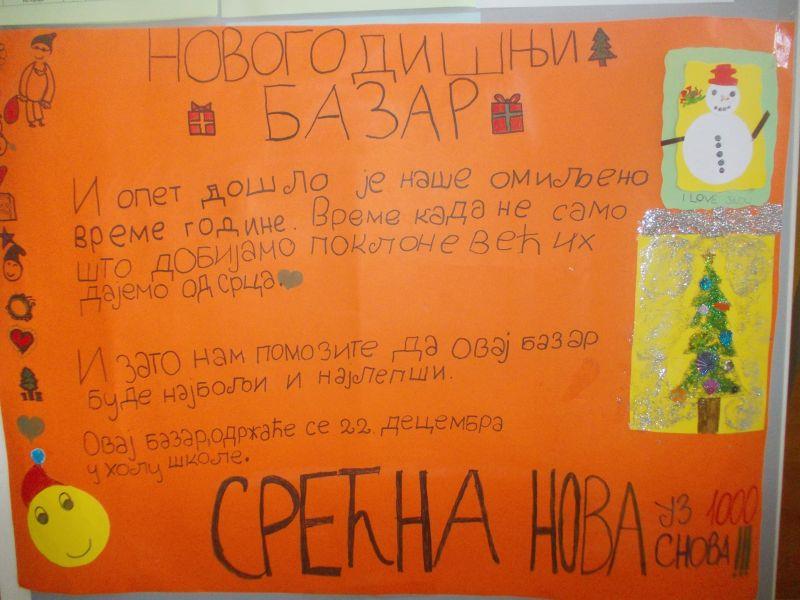 НОВОГОДИШЊИ
БАЗАР
И опет дошло је наше омиљено
време године. Време када не само
што добијамо поклоне већ их
дајемо од срца.
И зато нам помозите да овај базар
буде најбољи и најлепши.
Овај базар,одржаће се 22. децембра
у холу школе.
СРЕЋНА НОВА
УЗ 1000
СНОВА!!!
I LOVE